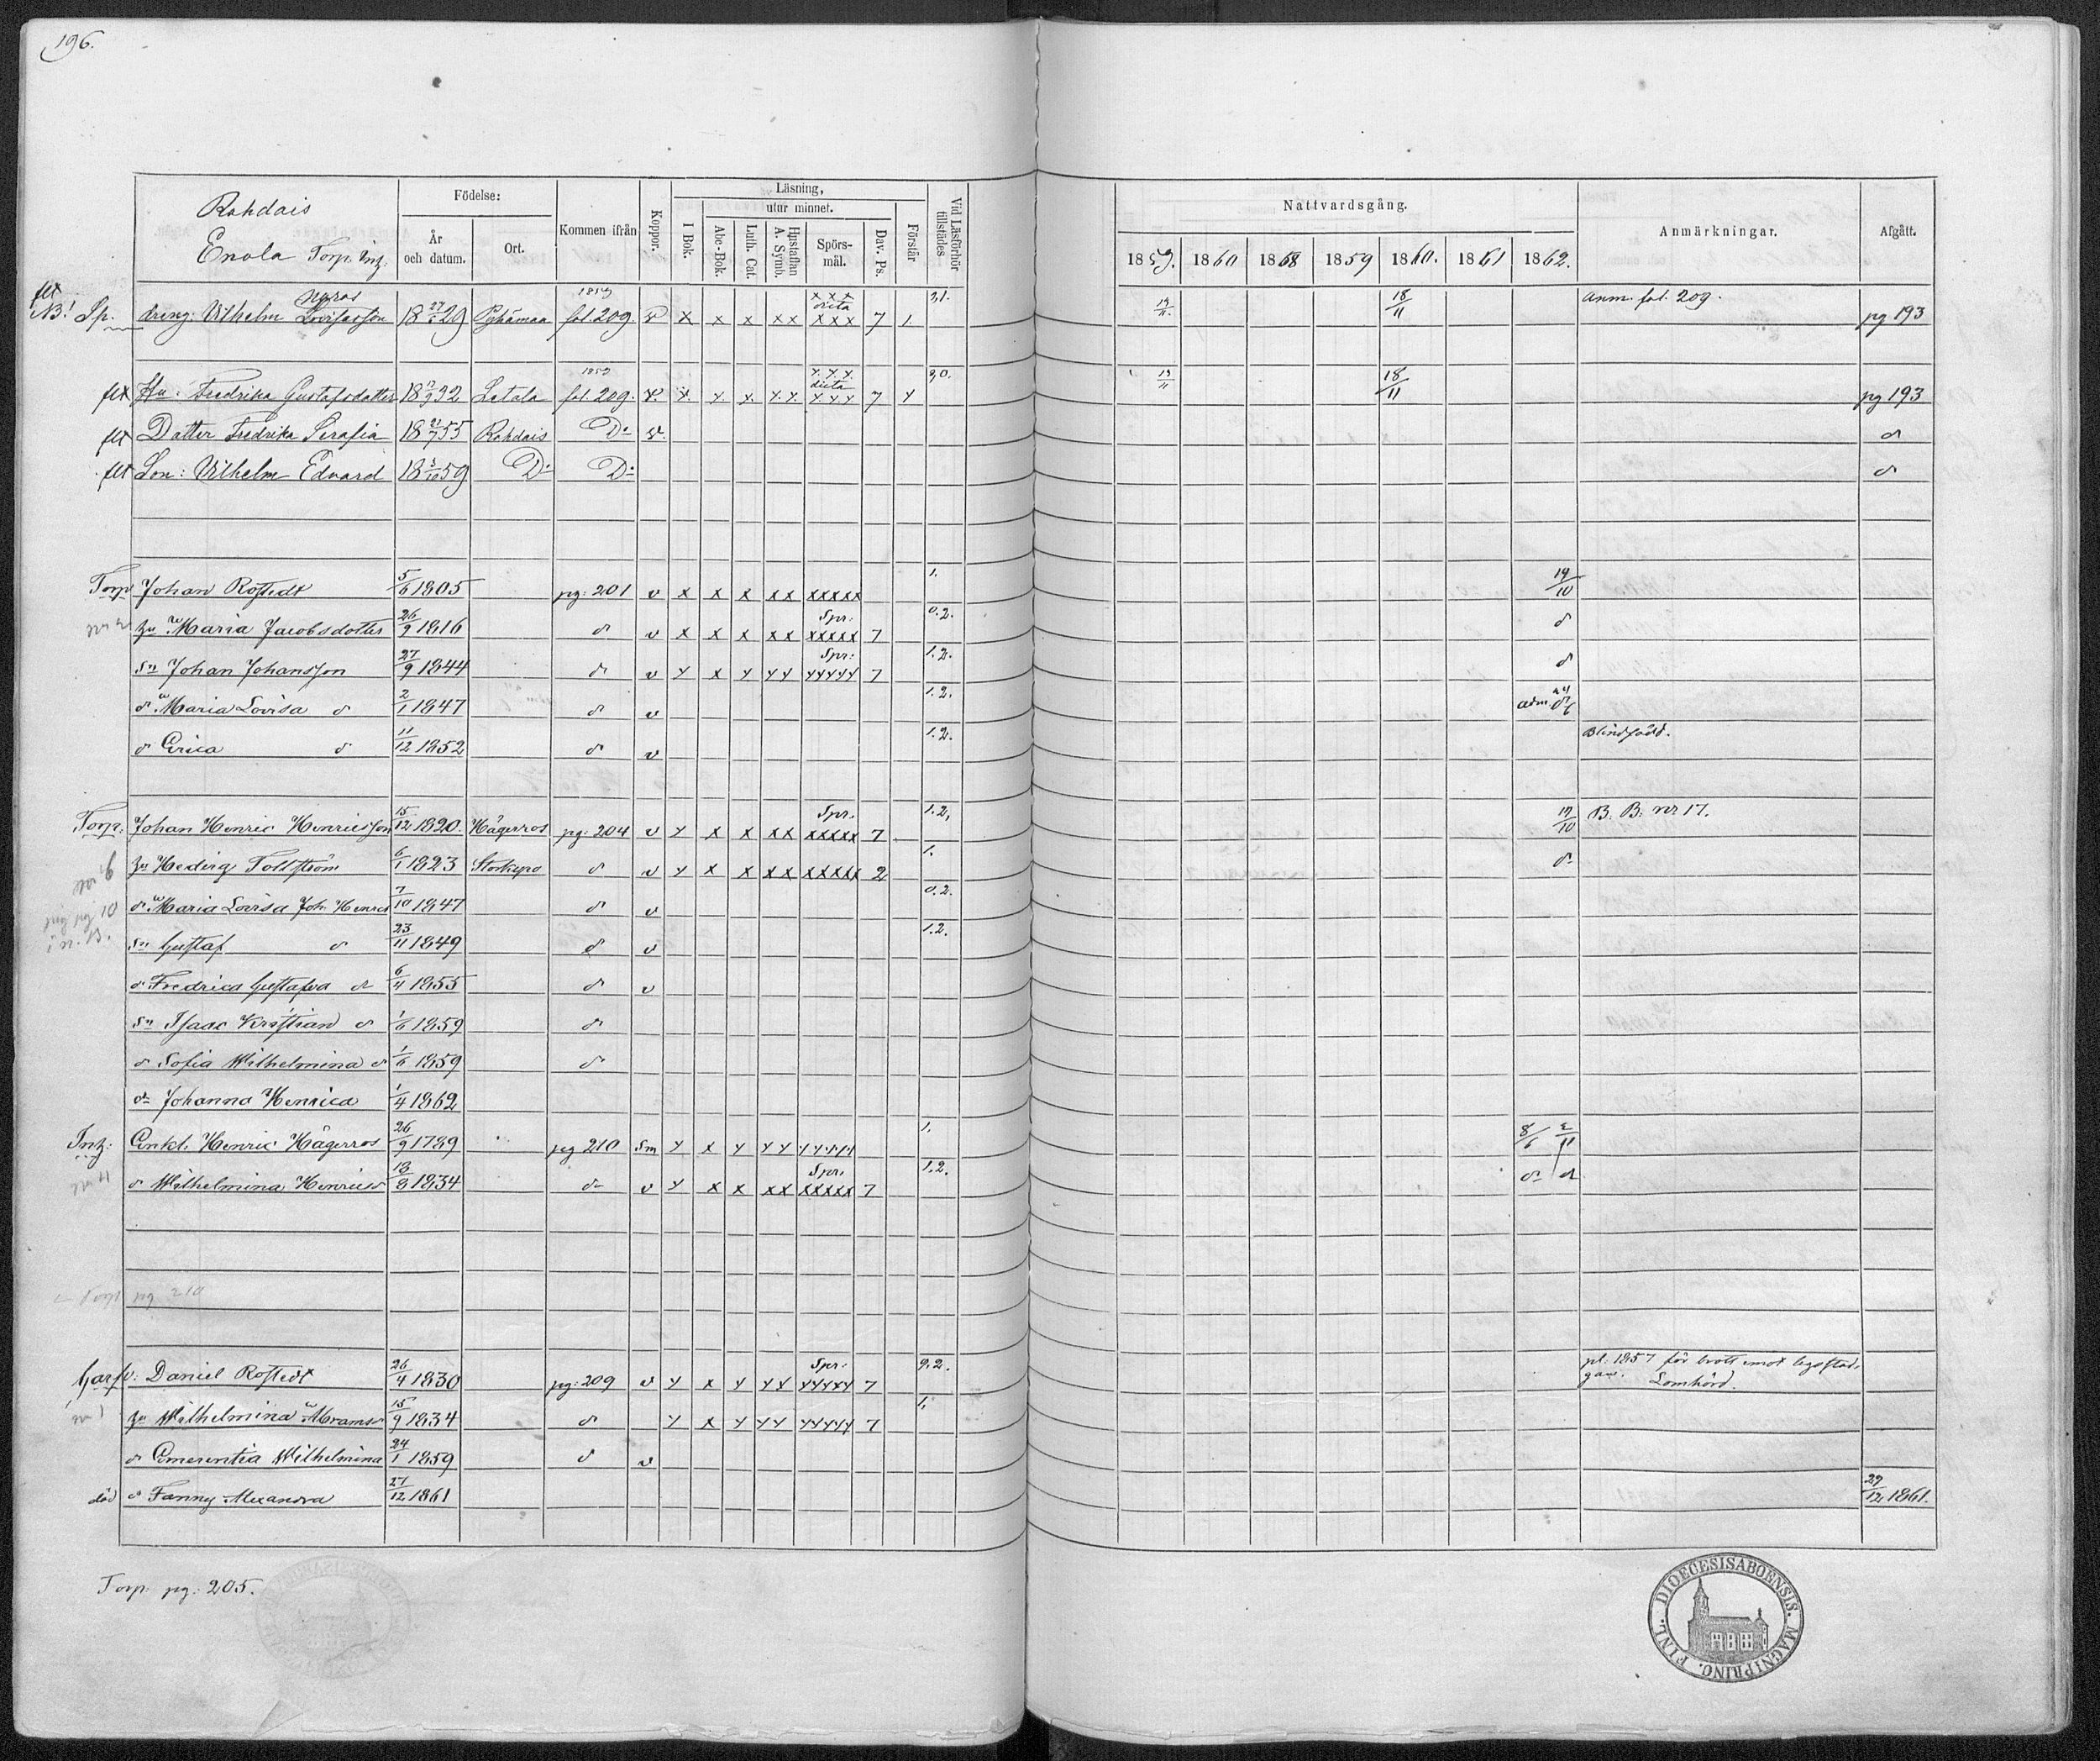 196.
Rahdais
Enola Torp. Inh:
Födelse:
År och datum.
Ort.
Kommen ifrån
Koppor.
Läsning,
I Bok.
utur minnet.
Abc-Bok.
Luth. Cat.
Hustaflan A. Symb.
Spörsmål.
Dav. Ps.
Förstår
Vid Läsförhör tillstädes
Nattvardsgång.
1859. 1860 1868 1859 1860. 1861 1862.
Anmärkningar.
Afgått.
NB! Sp. dreng: Vilhelm Lovisasson 18 29 Pyhämaa 1859 fol. 209. v x x x xx xxx dicta xxx 7 1. 3,1. 19/11. 18/11 Anm. fol. 209. pg 193
flt Hu: Fredrika Gustafsdotter 18 32 Letala 1859 fol. 209. v. x. x. x. x.x. x.x.x. dicta x x x 7 x 3,0. 19/11 18/11 pg 193
flt Dotter Fredrika Serafia 18 55 Rahdais Do v. d
flt Son: Vilhelm Edvard 18 59 Do Do d
Torp Johan Rostedt 5/6 1805 pg: 201 v x x x xx xxxxx 1. 19/10
hu Maria Jacobsdotter 26/9 1816 d v x x x xx Spr: xxxxx 7 0.2. d
sn Johan Johansson 27/9 1844 d v x x x xx Spr: xxxxx 7 1.2. d
d Maria Lovisa d 2/1 1847 d v 1.2. adm.
d Erica d 11/12 1852 d v 1.2. Blindfödd.
Torp. Johan Henric Henricsson 15/12 1820. Hägerros pg: 204 v x x x xx Spr. xxxxx 7 1.2, 19/10 B. B. nr 17.
hu Hedvig Tollström 6/1 1823 d v x x x xx xxxxx 2 1. d
d Maria Lovisa Joh. Henricsd 7/10 1847 d v 0.2.
sn Gustaf d 23/11 1849 d v 1.2.
d Fredrica Gustafva d 6/4 1855 d v
sn Isaac Kristian d 1/6 1859 d
d Sofia Wilhelmina d 1/6 1859 d
d Johanna Henrica 1/4 1862
Inh: Enkl. Henric Hägerros 26/9 1789 pg 210 sm x x x xx xxxxx 1. 8/6 2/11
d Wilhelmina Henricsd 13/8 1834 d v x x x xx Spr. xxxxx 7 1.2. d d
Torp pg 210
Garfv: Daniel Rostedt 26/4 1830 pg: 209 v x x x xx Spr. xxxxx 7 9.2. pl: 1857 för brott emot legostadgan. Lomhörd.
nr 1 hu Wilhelmina Abramsd 15/9 1834 d x x x xx xxxxx 7 1.
d Emerentia Wilhelmina 24/1 1859 d v
död d Fanny Alexandra 27/12 1861 29/12 1861.
Torp. pg: 205.
DIOECESIS ABOENSIS. MAGNI PRINC. FINL.